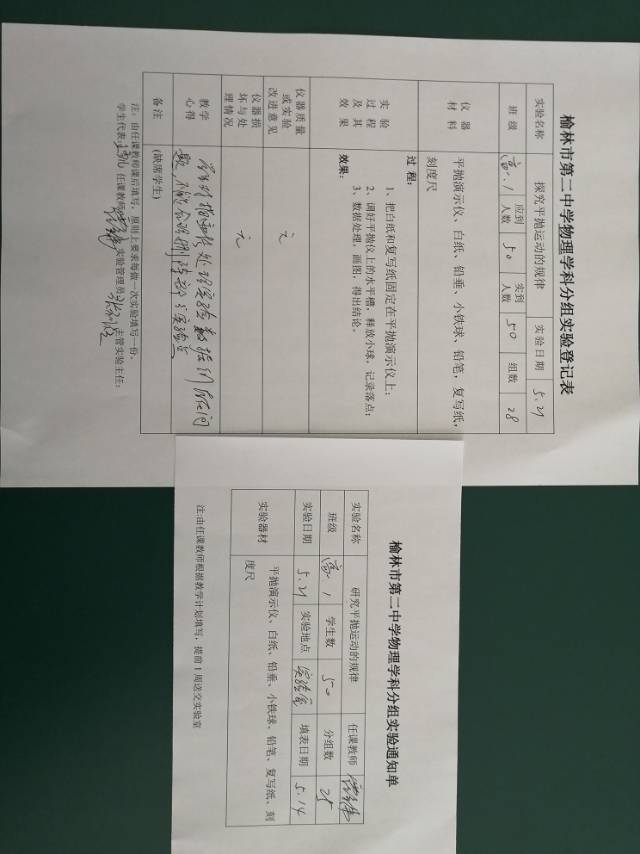 榆林市第二中学物理学科分组实验登记表
实验名称 探究平抛运动的规律 实验日期 5.21
班级 高一.1 应到人数 50 实到人数 50 组数 28
仪器材料 平抛演示仪、白纸、铅垂、小铁球、铅笔，复写纸，
刻度尺
实验过程及其效果
过程：
1、把白纸和复写纸固定在平抛演示仪上；
2、调好平抛仪上的水平槽，释放小球，记录落点；
3、数据处理，画图，得出结论。
效果：
仪器质量或实验改进意见 无
仪器损坏与处理情况 无
教学心得
备注 (缺席学生)
注：由任课教师课后填写，原则上要求每做一次实验填写一份，
学生代表： 任课教师 实验管理员 主管实验主任：
榆林市第二中学物理学科分组实验通知单
实验名称 研究平抛运动的规律 任课教师
班级 高一.1 学生数 50 分组数 25
实验日期 5.21 实验地点 实验室 填表日期 5.14
实验器材 平抛演示仪、白纸、铅垂、小铁球、铅笔、复写纸、刻
度尺
注:由任课教师根据教学计划填写，提前1周送交实验室